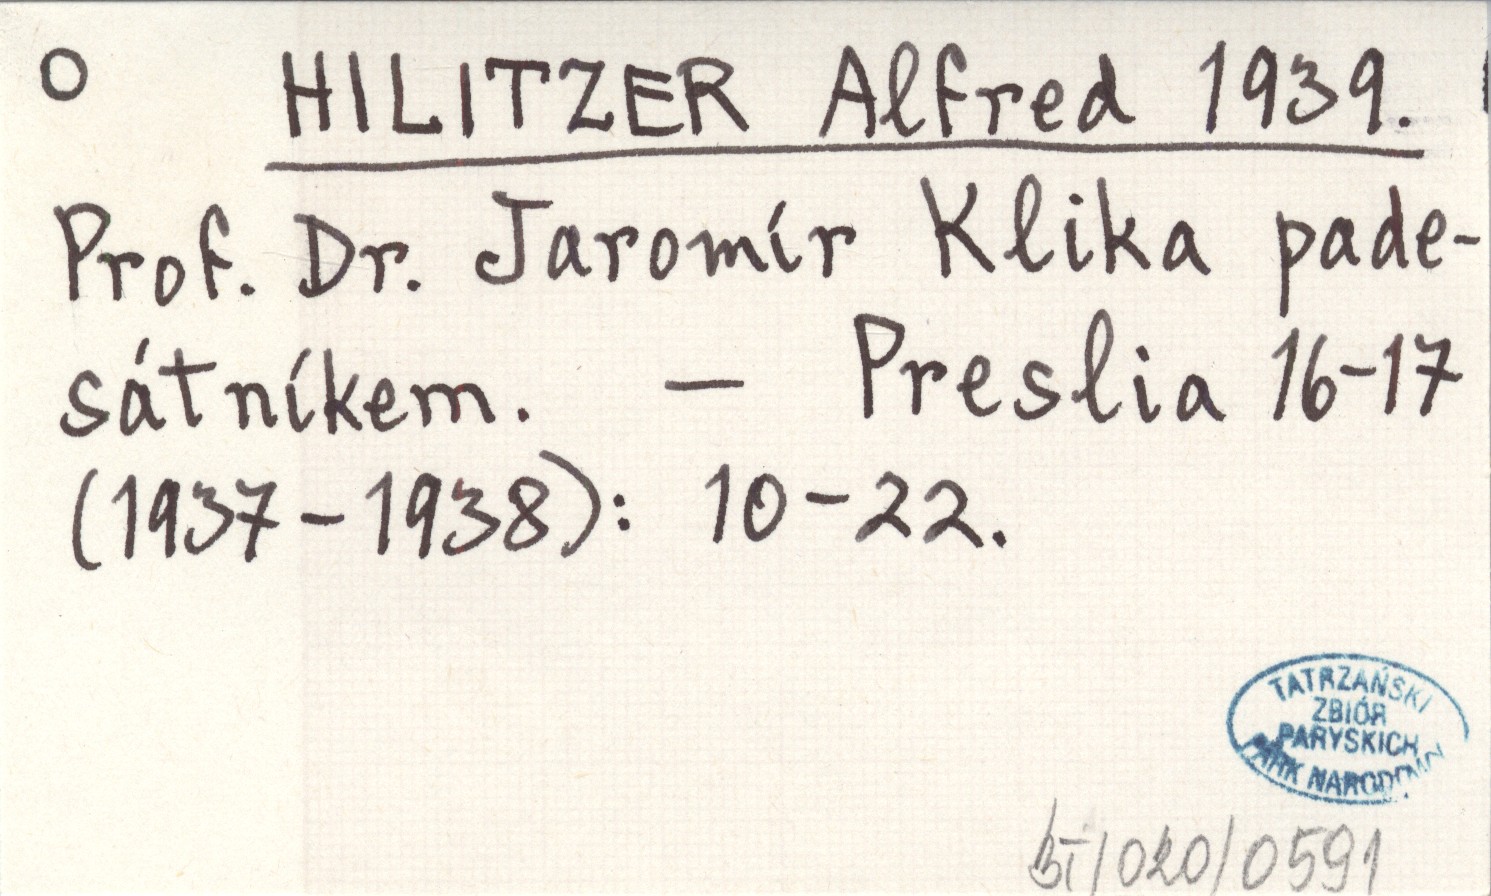 O HILITZER Alfred 1939.
Prof. Dr. Jaromír Klika pade-
sátníkem. — Preslia 16-17
(1937-1938): 10-22.
TATRZAŃSKI
ZBIÓR
PARYSKICH
PARK NARODOWY
BT/020/0591